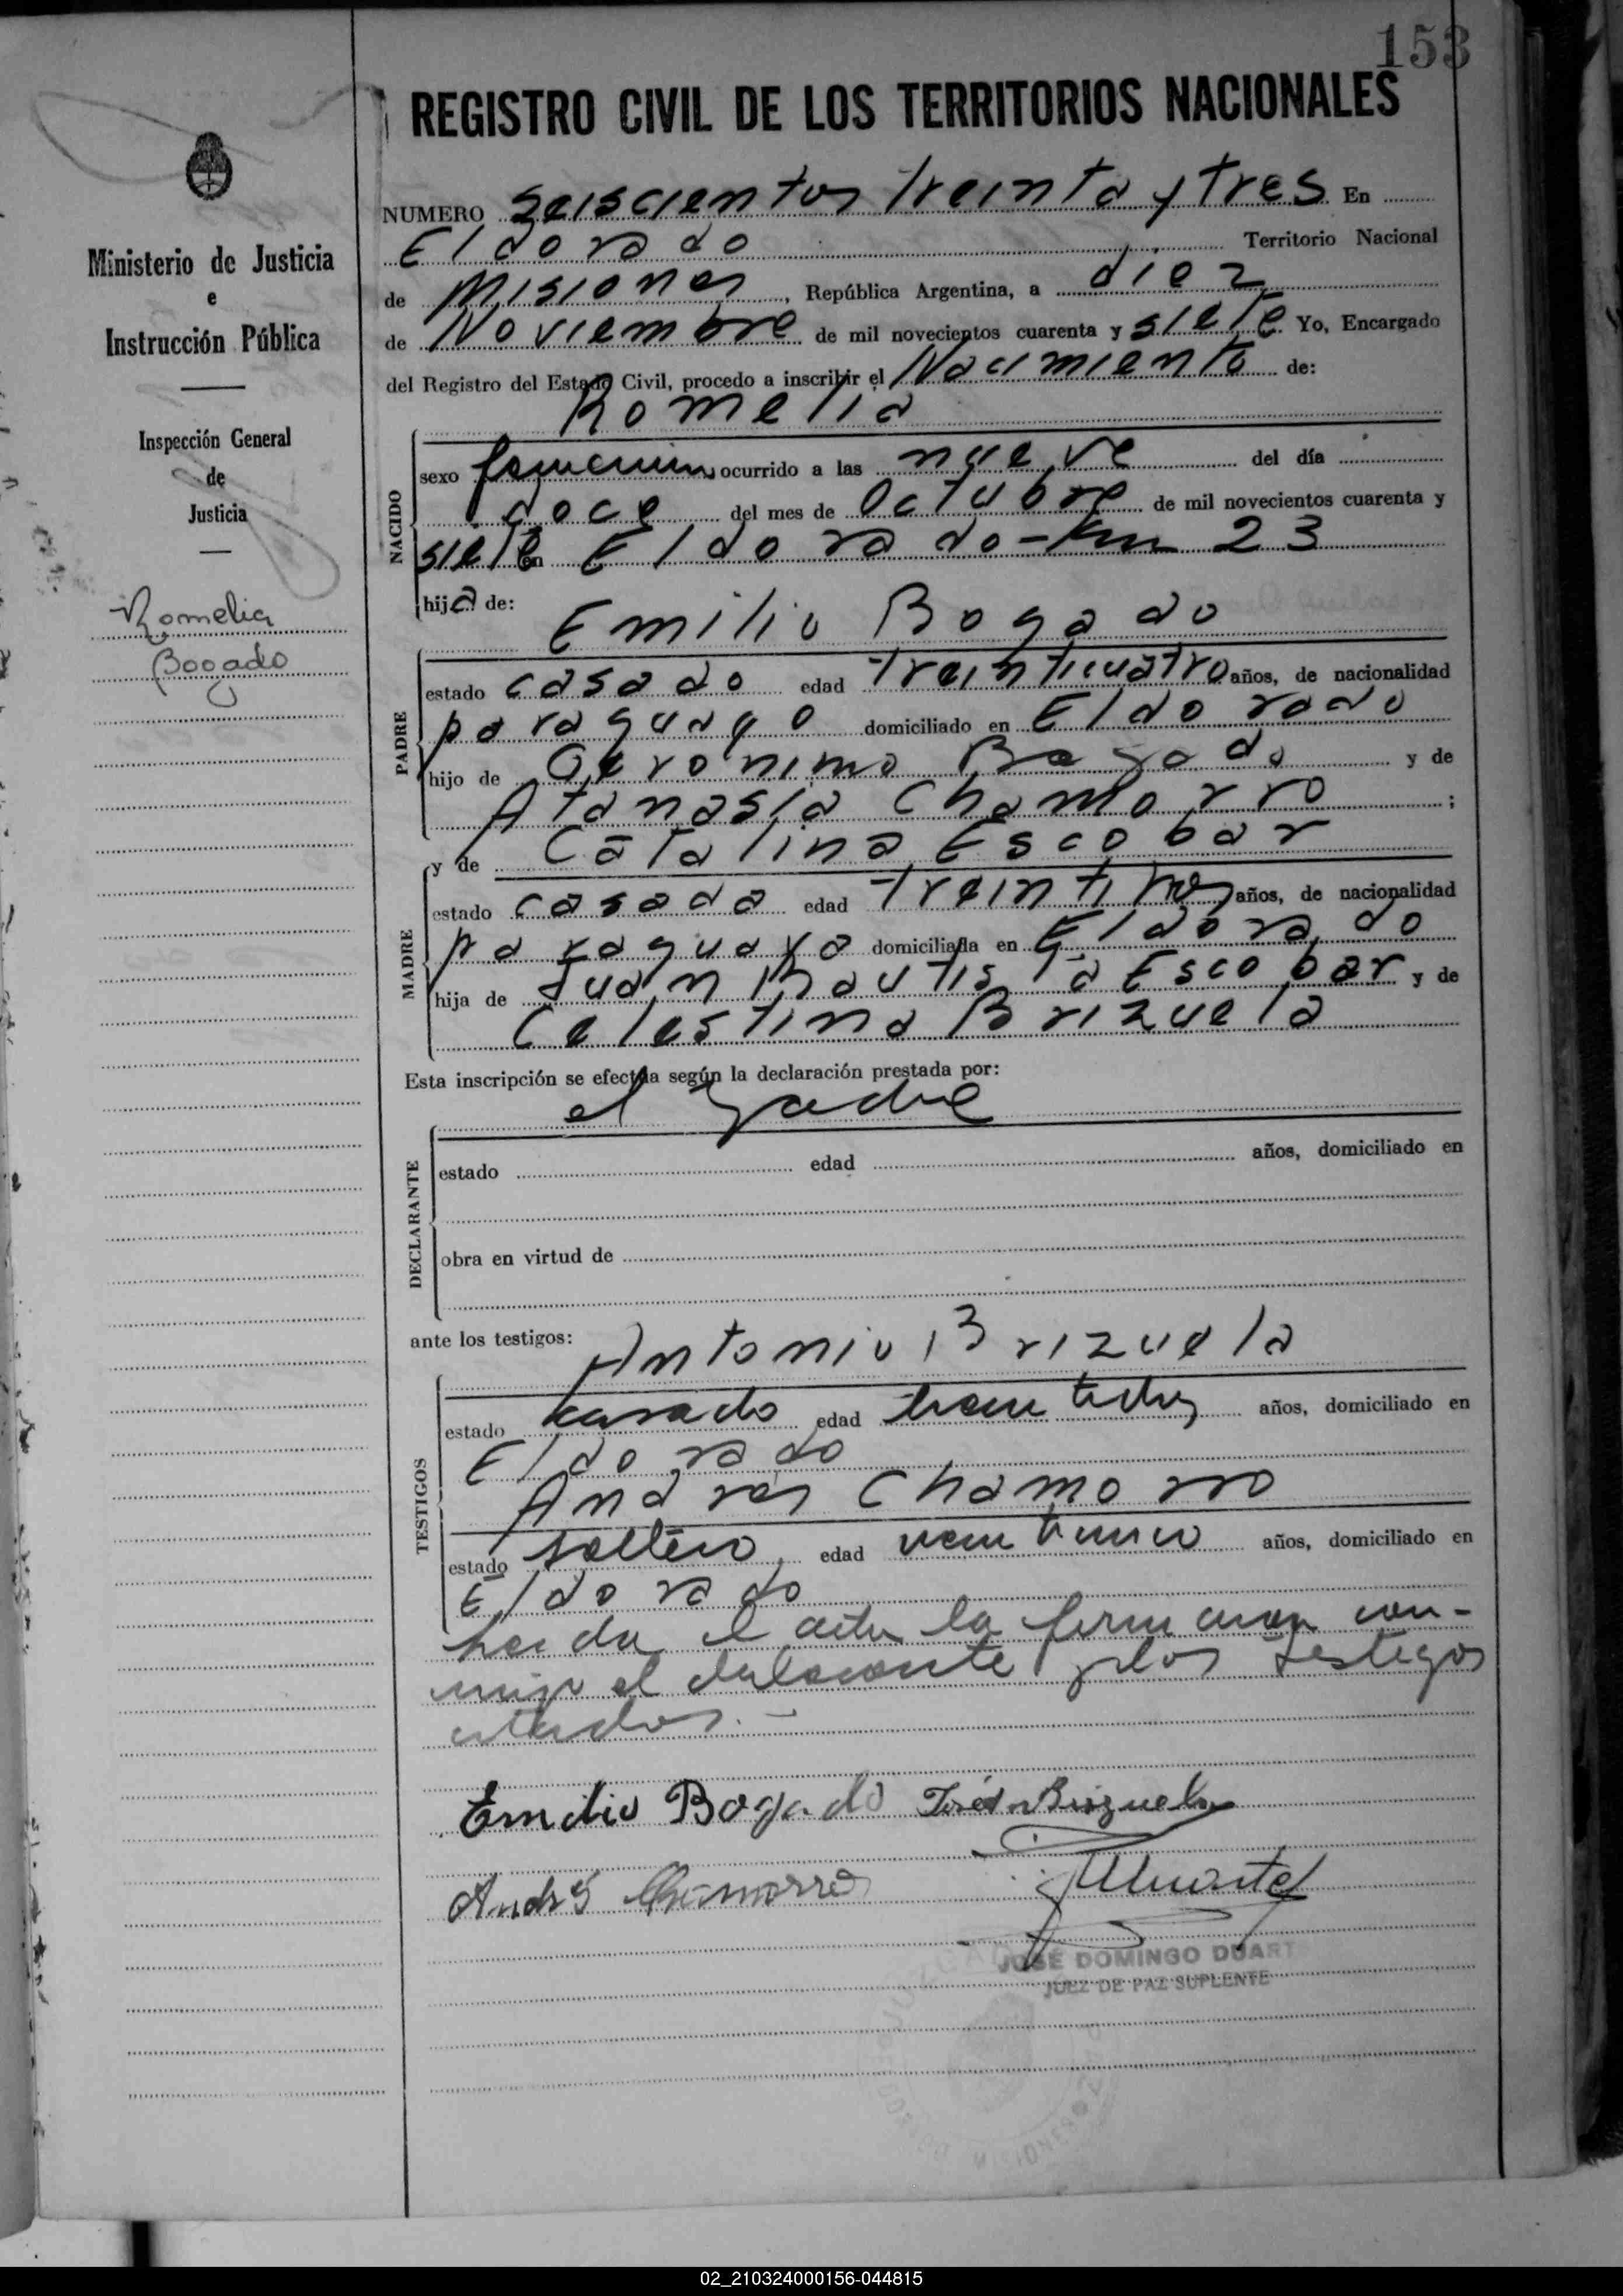 153
REGISTRO CIVIL DE LOS TERRITORIOS NACIONALES
Ministerio de Justicia
e
Instrucción Pública
Inspección General
de
Justicia
Romelia
Bogado
NUMERO seiscientos treinta y tres En
Eldorado Territorio Nacional
de Misiones, República Argentina, a diez
de Noviembre de mil novecientos cuarenta y siete. Yo, Encargado
del Registro del Estado Civil, procedo a inscribir el Nacimiento de:
Romelia
NACIDO
sexo femenino ocurrido a las nueve del día
doce del mes de Octubre de mil novecientos cuarenta y
siete en Eldorado - Km 23
hija de:
Emilio Bogado
PADRE
estado casado edad treinticuatro años, de nacionalidad
paraguayo domiciliado en Eldorado
hijo de Gerónimo Bogado y de
Atanasia Chamorro ;
y de Catalina Escobar
MADRE
estado casada edad treintitres años, de nacionalidad
paraguaya domiciliada en Eldorado
hija de Juan Bautista Escobar y de
Celestina Brizuela
Esta inscripción se efectúa según la declaración prestada por:
el padre
DECLARANTE
estado edad años, domiciliado en
obra en virtud de
ante los testigos:
Antonio Brizuela
TESTIGOS
estado casado edad años, domiciliado en
Eldorado
Andres Chamorro
estado soltero, edad años, domiciliado en
Eldorado
Leida el acta la firmaron con-
migo el declarante y los testigos
citados. -
Emilio Bogado Brizuela
Andrés Chamorro JDuarte
JOSÉ DOMINGO DUART
JUEZ DE PAZ SUPLENTE
02_210324000156-044815